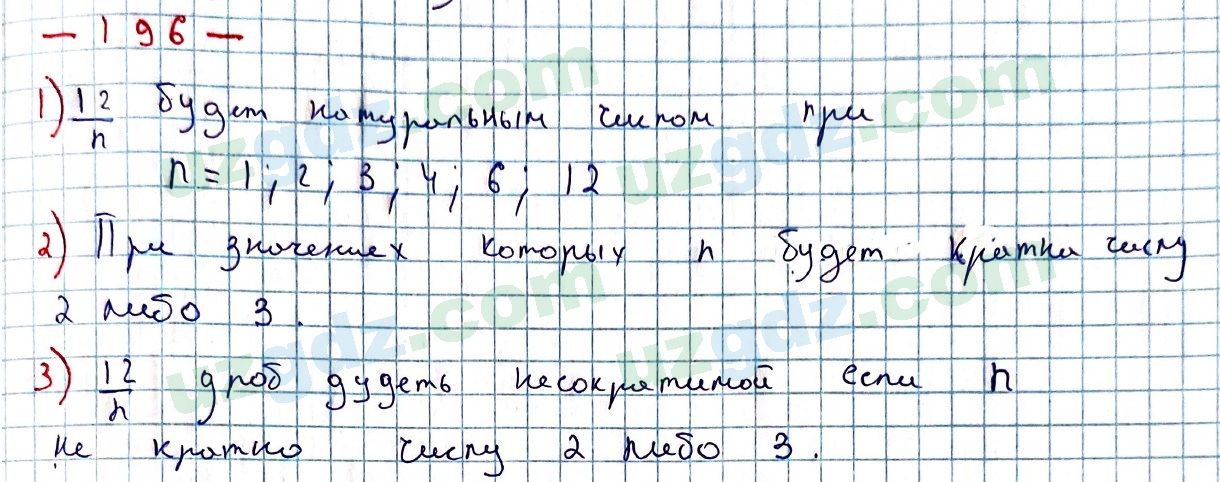 — 196 —
1) 12/n будет натуральным числом при
n = 1; 2; 3; 4; 6; 12
2) При значениях которых n будет кратна числу
2 либо 3.
3) 12/n дроб дудеть несократимой если n
не кратно числу 2 либо 3.
uzgdz.com uzgdz.com
uzgdz.com uzgdz.com